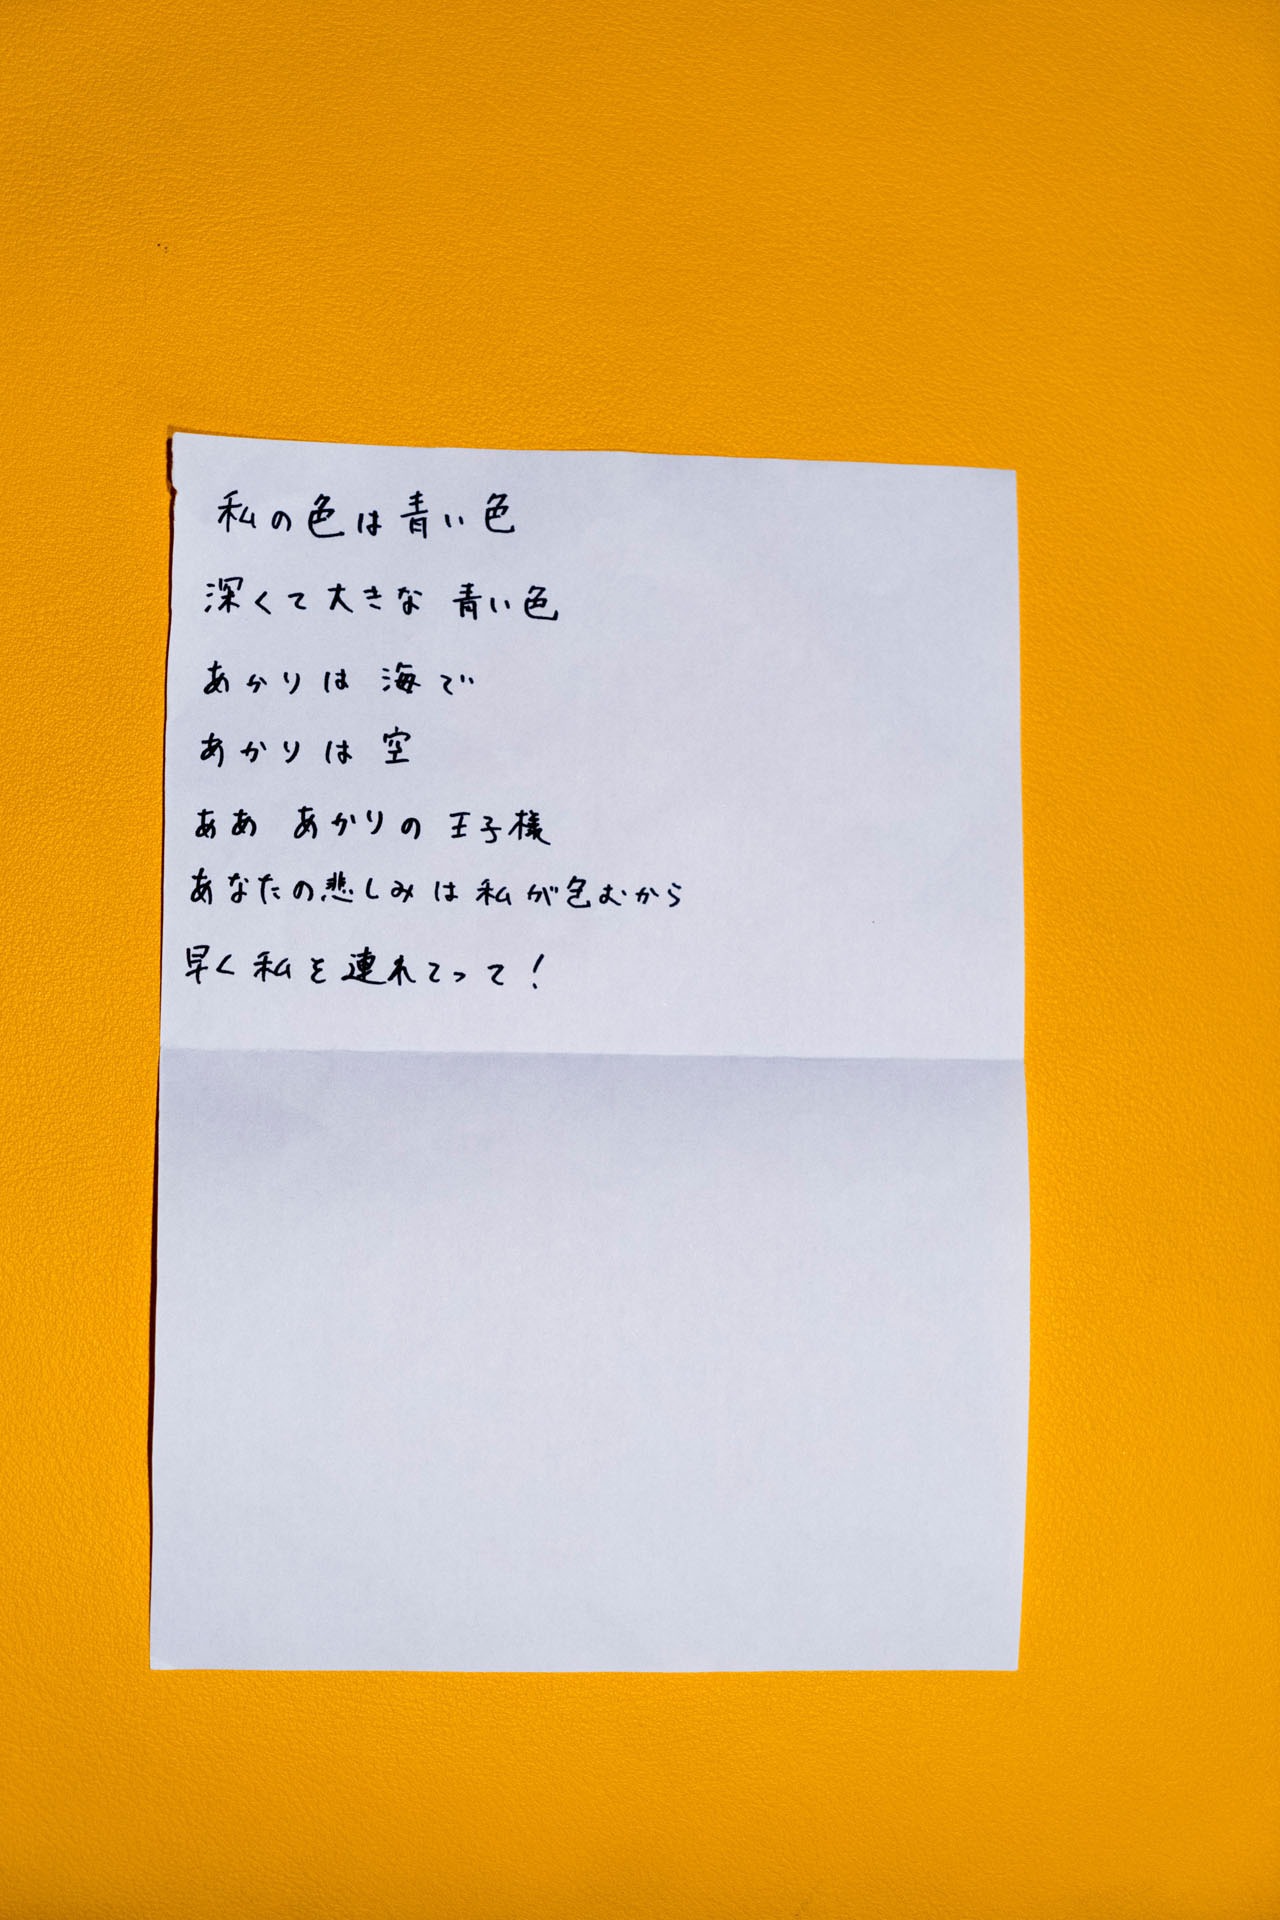 私の色は青い色
深くて大きな 青い色
あかりは 海で
あかりは 空
ああ あかりの 王子様
あなたの悲しみは 私が包むから
早く私を連れてって！